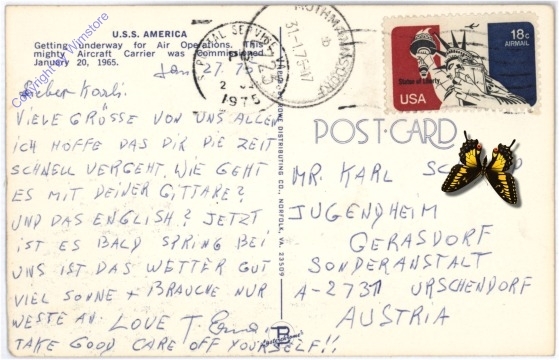 U.S.S. AMERICA
Getting underway for Air Operations. This
mighty Aircraft Carrier was commissioned
January 20, 1965.
Jan. 27. 75
Lieber Karli.
VIELE GRÜSSE VON UNS ALLEN
ICH HOFFE DAS DIR DIE ZEIT
SCHNELL VERGEHT. WIE GEHT
ES MIT DEINER GITTARE?
UND DAS ENGLISH? JETZT
IST ES BALD SPRING BEI
UNS IST DAS WETTER GUT
VIEL SONNE + BRAUCHE NUR
WESTE AN. LOVE T.
TAKE GOOD CARE OFF YOURSELF!!
Copyright by Nimstore
POSTAL SERVICE
PM
1975
31-1.75-17
18c
AIRMAIL
Statue of Liberty
USA
POST CARD
DISTRIBUTING CO., NORFOLK, VA. 23509
MR. KARL
JUGENDHEIM
GERASDORF
SONDERANSTALT
A-2731 URSCHENDORF
AUSTRIA